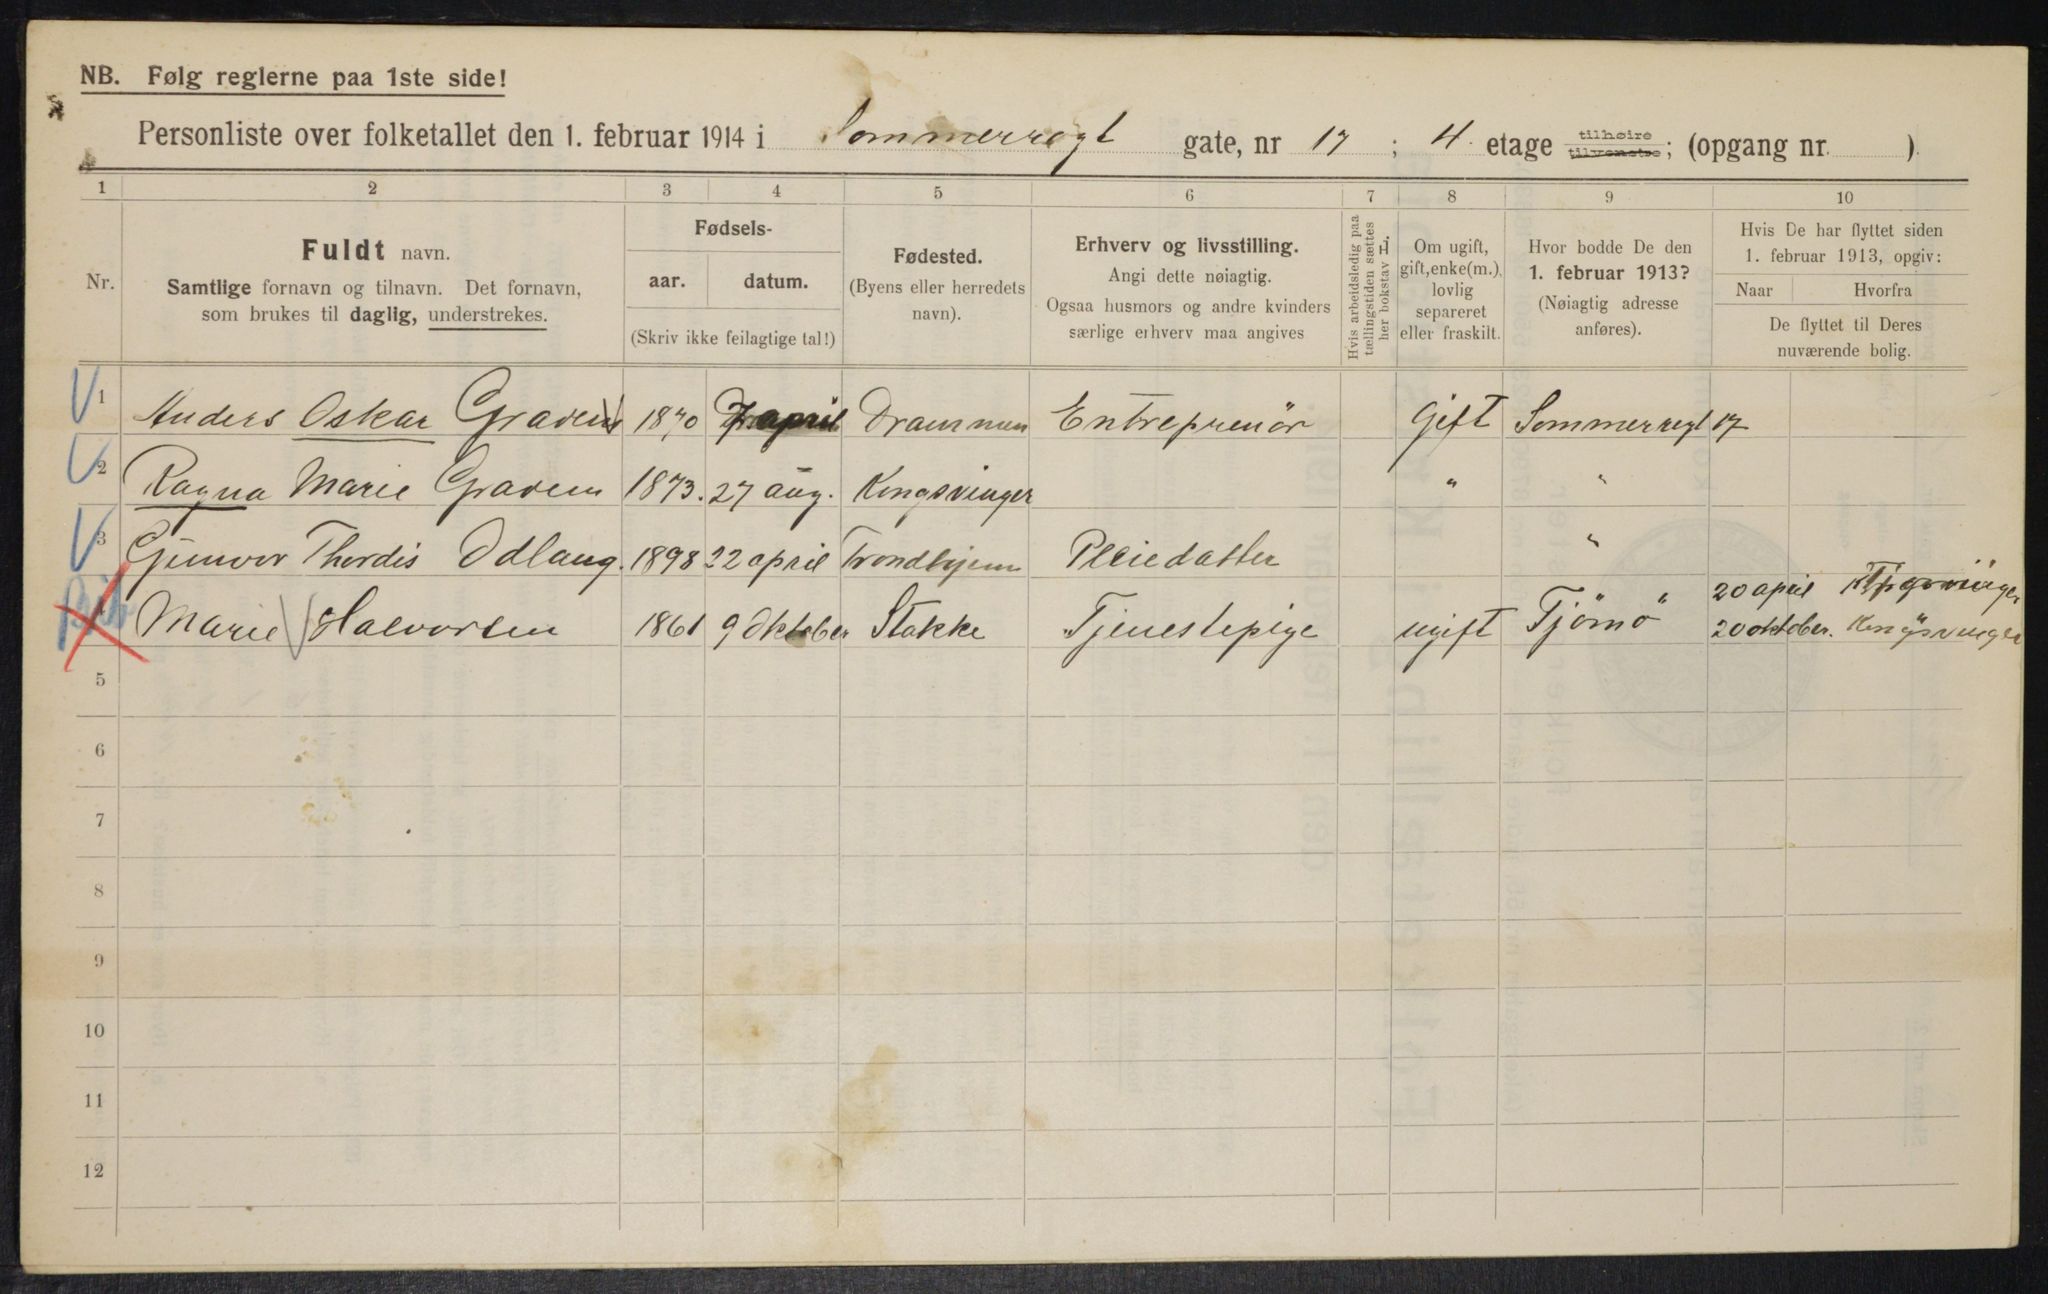 NB. Følg reglerne paa 1ste side!
Personliste over folketallet den 1. februar 1914 i Sommerrogt gate, nr 17 ; 4. etage tilhøire tilvenstre; (opgang nr. )
1 2 3 4 5 6 7 8 9 10
Nr.
Fuldt navn.
Samtlige fornavn og tilnavn. Det fornavn,
som brukes til daglig, understrekes.
Fødsels-
aar. datum.
(Skriv ikke feilagtige tal!)
Fødested.
(Byens eller herredets
navn).
Erhverv og livsstilling.
Angi dette nøiagtig.
Ogsaa husmors og andre kvinders
særlige erhverv maa angives
Hvis arbeidsledig paa
tællingstiden sættes
her bokstav L.
Om ugift,
gift, enke(m.),
lovlig
separeret
eller fraskilt.
Hvor bodde De den
1. februar 1913?
(Nøiagtig adresse
anføres).
Hvis De har flyttet siden
1. februar 1913, opgiv:
Naar Hvorfra
De flyttet til Deres
nuværende bolig.
1 Anders Oskar Graven 1870 7 april Drammen Entreprenör Gift Sommerrogt 17
2 Ragna Marie Graven 1873. 27 aug. Kongsvinger " "
3 Gunvor Thordis Odlaug. 1898 22 april Trondhjem Pleiedatter "
20 april
4 Marie Halvorsen 1861 9 Oktober Stokke Tjenestepige ugift Tjömö 20 oktober. Kongsvinger
5
6
7
8
9
10
11
12